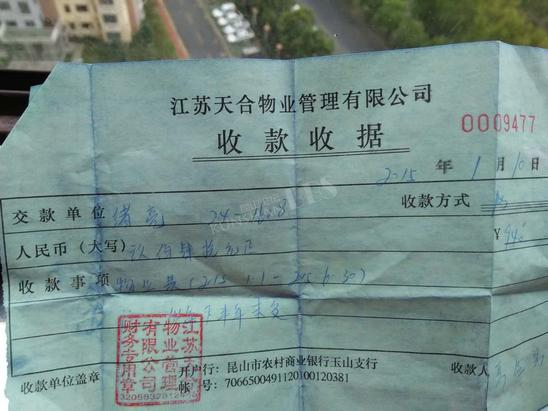 江苏天合物业管理有限公司
收款收据
0009477
2015 年 1 月 10 日
交款单位 24-1608 收款方式
人民币（大写）玖佰肆拾元正 ¥ 940
收款事项 物业费(2015.1.1-2015.6.30)
江苏天合
物业管理
有限公司
财务专用章
开户行：昆山市农村商业银行玉山支行
帐 号：7066500491120100120381
收款单位盖章 收款人